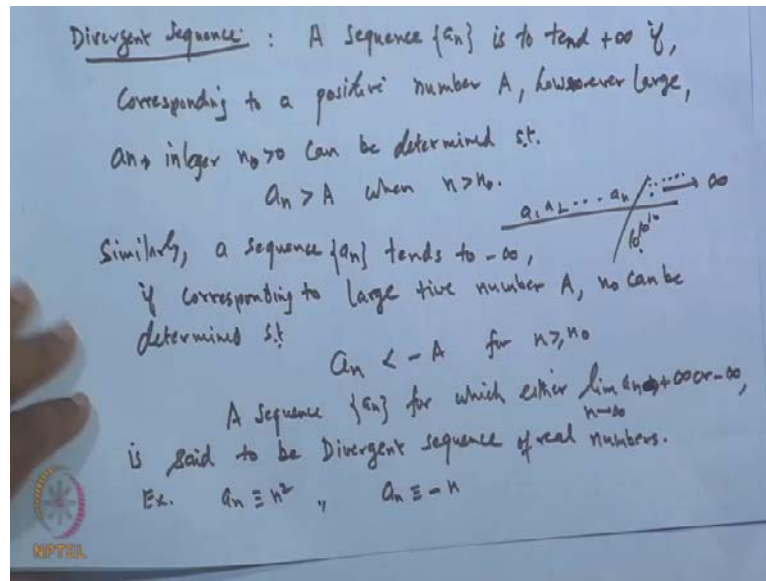 Divergent Sequence : A sequence {an} is to tend +∞ if,
Corresponding to a positive number A, howsoever large,
an integer n₀>0 can be determined s.t.
an > A when n>n₀.
a₁ a₂ ... an ∞
10^10^10
Similarly, a sequence {an} tends to -∞,
if corresponding to large +ive number A, n₀ can be
determined s.t
an < -A for n>,n₀
A sequence {an} for which either lim an +∞ or -∞,
n→∞
is said to be Divergent sequence of real numbers.
Ex. an ≡ n² ,, an ≡ -n
NPTEL